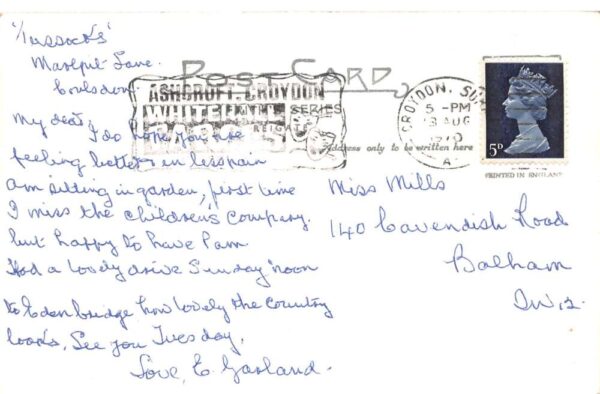 'Tussocks'
Marlpit Lane
Coulsdon
POST CARD
ASHCROFT, CROYDON
WHITEHALL
SERIES
FARCES
CROYDON, SURREY
5 - PM
3 AUG
1970
A
5D
Address only to be written here
PRINTED IN ENGLAND
My dear,
I do hope you are
feeling better & in less pain
am sitting in garden, first time
I miss the children's company.
but happy to have Pam
Had a lovely drive Sunday noon
to Edenbridge how lovely the country
looks, See you Tuesday.
Love, E Garland.
Miss Mills
140 Cavendish Road
Balham
SW12.